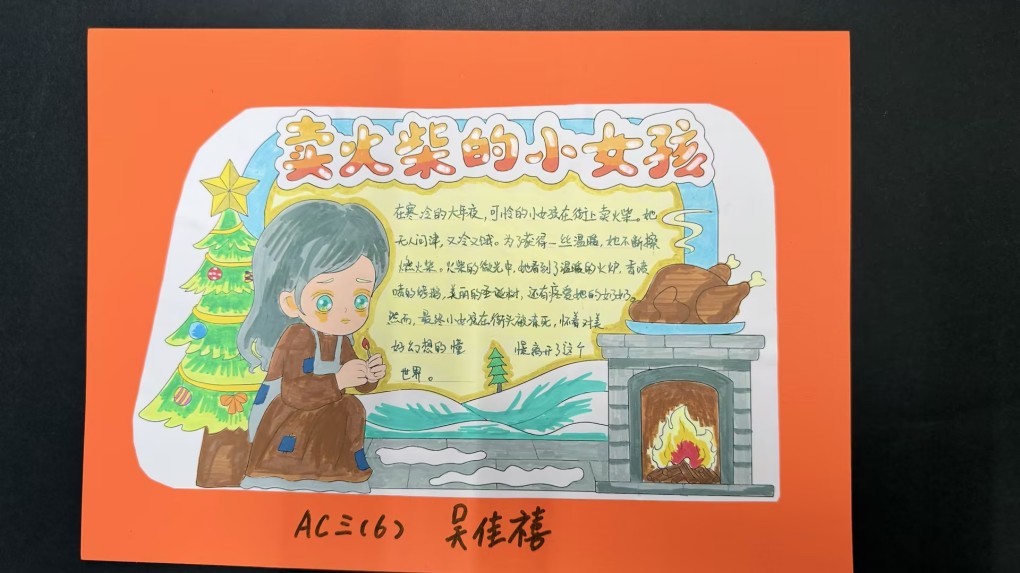 卖火柴的小女孩
在寒冷的大年夜，可怜的小女孩在街上卖火柴。她
无人问津，又冷又饿。为了获得一丝温暖，她不断擦
燃火柴。火柴的微光中，她看到了温暖的火炉，香喷
喷的烤鹅，美丽的圣诞树，还有疼爱她的奶奶。
然而，最终小女孩在街头被冻死，怀着对美
好幻想的憧 憬离开了这个
世界。
AC三(6) 吴佳禧